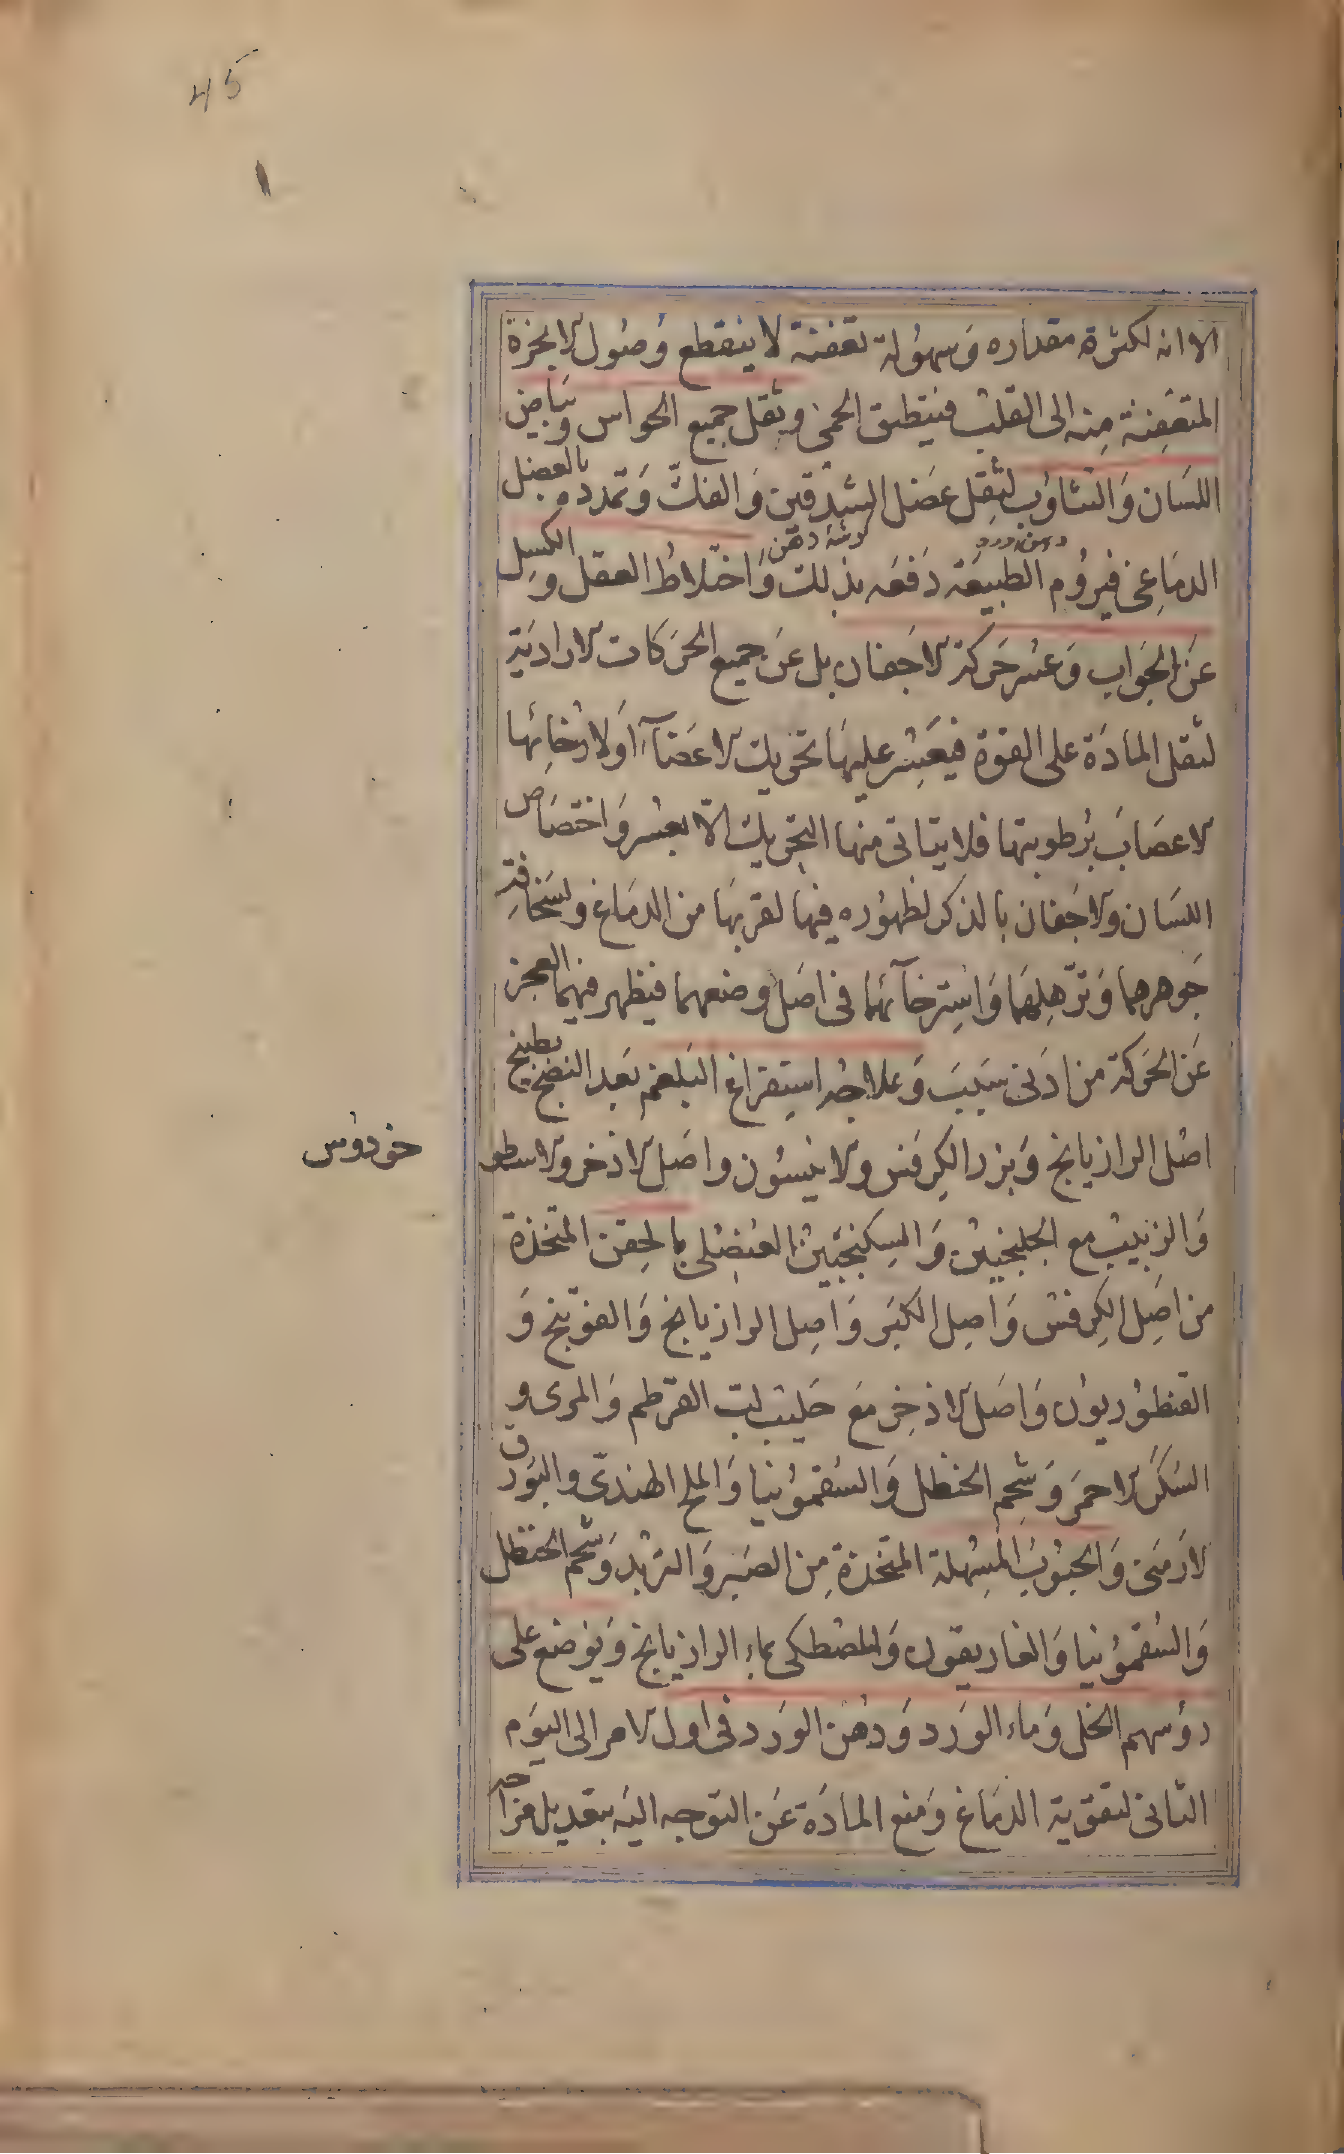 45
الا انه لكثرة مقداره وَسهوُلة تعفنة لا ينقطع وُصُول الابخرة
المتعَفِنة مِنه الى القلب فينطبق الحمىٰ ويثقل جميع الحواس وبَيَاض
اللسَان وَالتثاؤب لثِقل عضَل الشِدقين وَالفكّ وَتمدده بالعضل
الدمَاغى فيروُم الطبيعَة دَفعَه بذلك وَاختلاطُ العقل والكسِل
عَن الجوَاب وَعسُر حَركة الاجَفان بل عَن جميع الحَركات الاراديَة
لثقل المادَة على القوة فيَعسُر عليهَا تحريك الاعضَآء اَو لارتخِائها
الاعصَابَ برُطوبتها فلا يتاتى منها التحريك الّا بعسُر وَاختصَاص
اللسَان والاجَفان بالذكر لظهوُره فيها لقربهَا من الدمَاغ ولسَخافَة
جَوهرهما وَترّهلِهمَا وَاسِترخآئهما فى اصَل وضعهما فيظهر فيهما العجز
عَن الحركة من ادَنى سَبَب وَعلاجُه استِفراغ البَلغم بعَد النضج بطبيخ
اصْل الرازيانج وَبزر الكِرفسَ والانيسُون واصَل الاذخر والاسطو
خودوُس
وَالزبيب مع الجلنجبين وَالسِكنجَبين العنصُلى بالحِقن المتخذة
من اصَِل الكِرفسْ وَاصِل الكبَر وَاصِل الرازيانج وَالفوّتنج وَ
القنطوُريوُن وَاصَل الاذخِر مَع حَليب لبّ القرطم وَالمرى و
السُكّر الاحمَر وَشحِم الحنظل وَالسُقموُنيا وَالملح الهندىّ والبوَرق
الارَمنَى وَالحبُوبَ المسُهلة المتخذة مِن الصَبر وَالتربْد وَشحم الحنظل
وَالسُقموُنيا وَالغاريقون وَالمصُطكى بماء الرازيانج وَيوُضع على
رؤسهم الخل وَماء الوَرد وَدهُن الورَد فى اول الامر الى اليوَم
الثانى لتقوية الدمَاغ وَمنع المادَة عَن التوجه اليَه بتعديل مزاجه